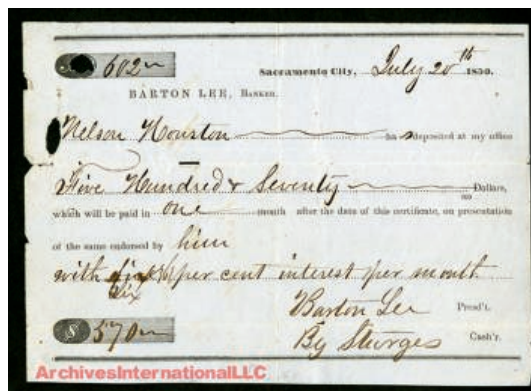 602
Sacramento City, July 20th 1850.
BARTON LEE, BANKER.
Nelson Houston has deposited at my office
Five Hundred & Seventy Dollars,
which will be paid in one month after the date of this certificate, on presentation
of the same endorsed by him
with six per cent interest per month
Six
Barton Lee Presd't.
$ 570 By Sturges Cash'r.
ArchivesInternationalLLC